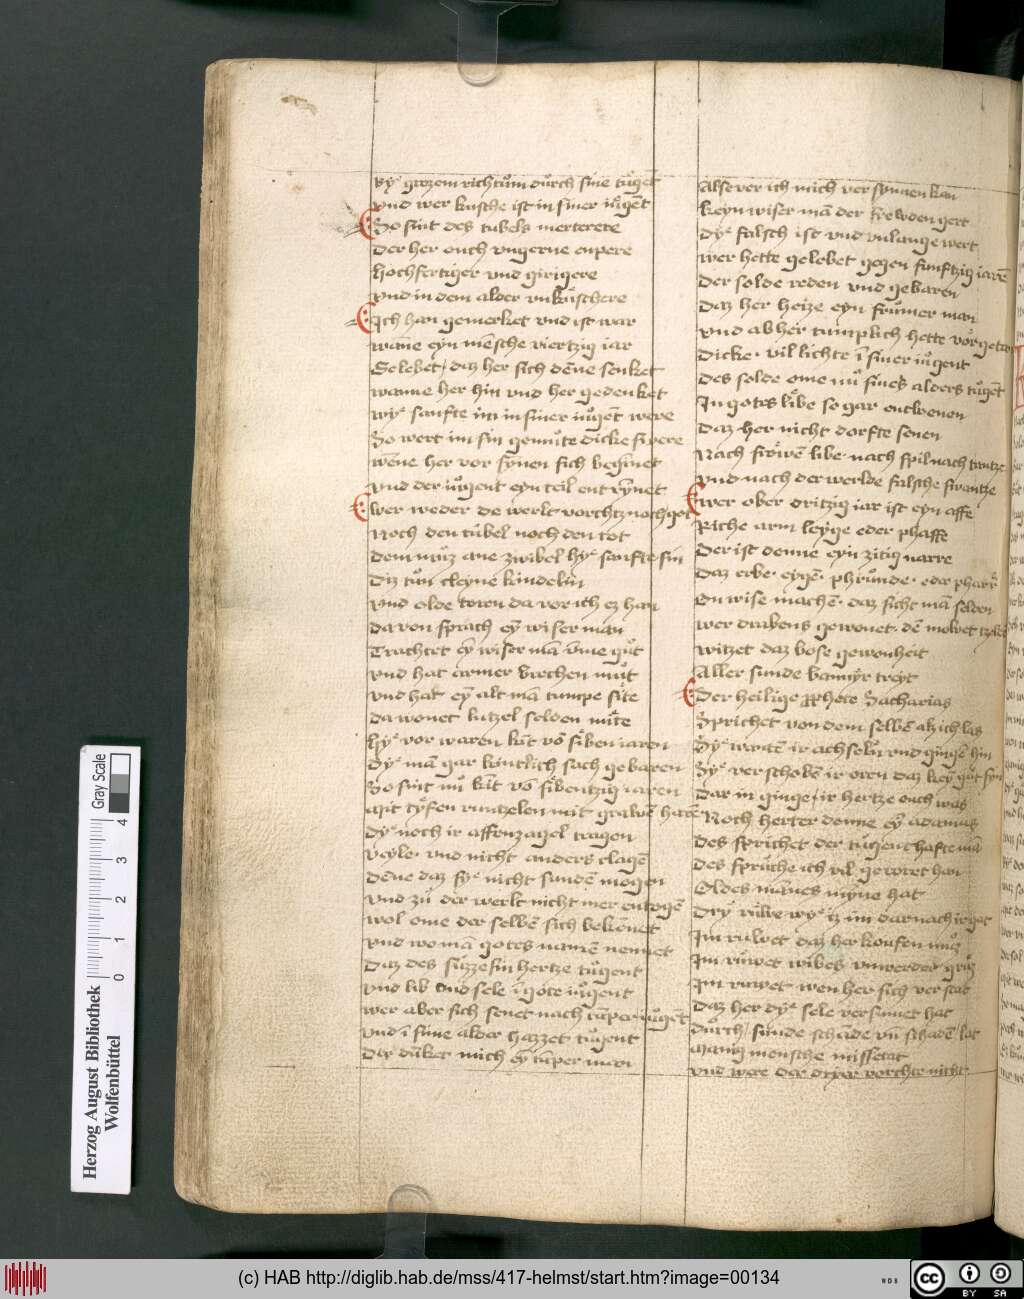 By grozem richtům důrch sine tůget
vnd wer kusche ist in siner iůgēt
So sint des tubels merterere
Der her ouch vngerne enpere
hochfertiger vnd girigere
vnd in dem alder vnkůschere
Ich han gemerket vnd ist war
wane eyn mēsche viertzig iar
Gelebet / daz her sich dēne senket
wanne her hin vnd her gedenket
wy sanfte im in siner iůgēt were
So wert im sin gemůte dicke swere
wēne her vor synen sich beginet
vnd der iůgent eyn teil entrynet
wer weder de werlt vorchtz noch got
Noch den tůbel noch den tot
Dem můz ane zwibel hy sanfte sin
Diz tůn cleyne kindelin
vnd olde toren da vor ich ez han
da von sprach ey wiser man
Trachtet ey wiser mā vme gůt
vnd hat armer brechen můt
vnd hat ey alt mā tumpe site
da wonet lutzel selden mite
hy vor waren kīt vō siben iaren
Dy mā gar kintlich sach gebaren
So sint nů kīt vō sibentzig iaren
Mit tyfen runtzelen mit grawen haren
Dy noch ir affenzagel tragen
veyle vnd nicht anders clagē
Dēne daz sy nicht sundē mogen
vnd zů der werlt nicht mer entogē
wol eme der selbē sich bekēnet
vnd wo mā gotes namē nennet
Daz des sůzze sin hertze tůgent
vnd lib vnd sele ī gote iůgent
wer aber sich senet nach tůper iůgēt
vnd ī sime alder hazzet tůgent
Der důket mich ey tůper man
Alse ver ich mich ver synnen kan
keyn wiser mā der frewden gert
Dy falsch ist vnd vnlange wert
wer hette gelebet gegen funftzig iarē
Der solde reden vnd gebaren
Daz her heize eyn frůmer man
vnd ab her tumplich hette vorgeten
Dicke vil lichte ī siner iůgent
Des solde eme nů sines alders tůgēt
In gotes libe so gar entwenen
Daz her nicht dorfte senen
Nach frowē libe nach spil nach tantze
vnd nach der werlde falsche swantze
wer ober dritzig iar ist eyn affe
Riche arm leyge eder phaffe
Der ist denne eyn zitig narre
Daz erbe eygē phrůnde eder pharr
En wise machē daz sicht mā selden
wer drabens gewonet dē mowet tzelden
witzet daz bose gewonheit
Aller sunde banyr treyt
Der heilige prphete Zacharias
Sprichet von dem selbē alz ich las
Sy wantē ir achseln vnd gingē hin
Sy verschobē ir oren daz key gůt syn
Dar in ginge ir hertze ouch was
Noch herter denne ey adamas
Des sprichet der tůgenthafte mā
Des sprůche ich vil gehoret han
Oldes manes myne hat
Dry růwe wy iz im dar nach irgat
Im ruwet daz her koufen můz
Im růwet wibes vnwerder grůz
Im ruwet wen her sich verstat
Daz her dy sele versumet hat
důrch sunde schāde vn schadē lat
Manig mensche missetat
vnd were der dryer vorchte nicht
Herzog August Bibliothek
Wolfenbüttel
0 1 2 3 4
Gray Scale
(c) HAB http://diglib.hab.de/mss/417-helmst/start.htm?image=00134
WDB
cc BY SA